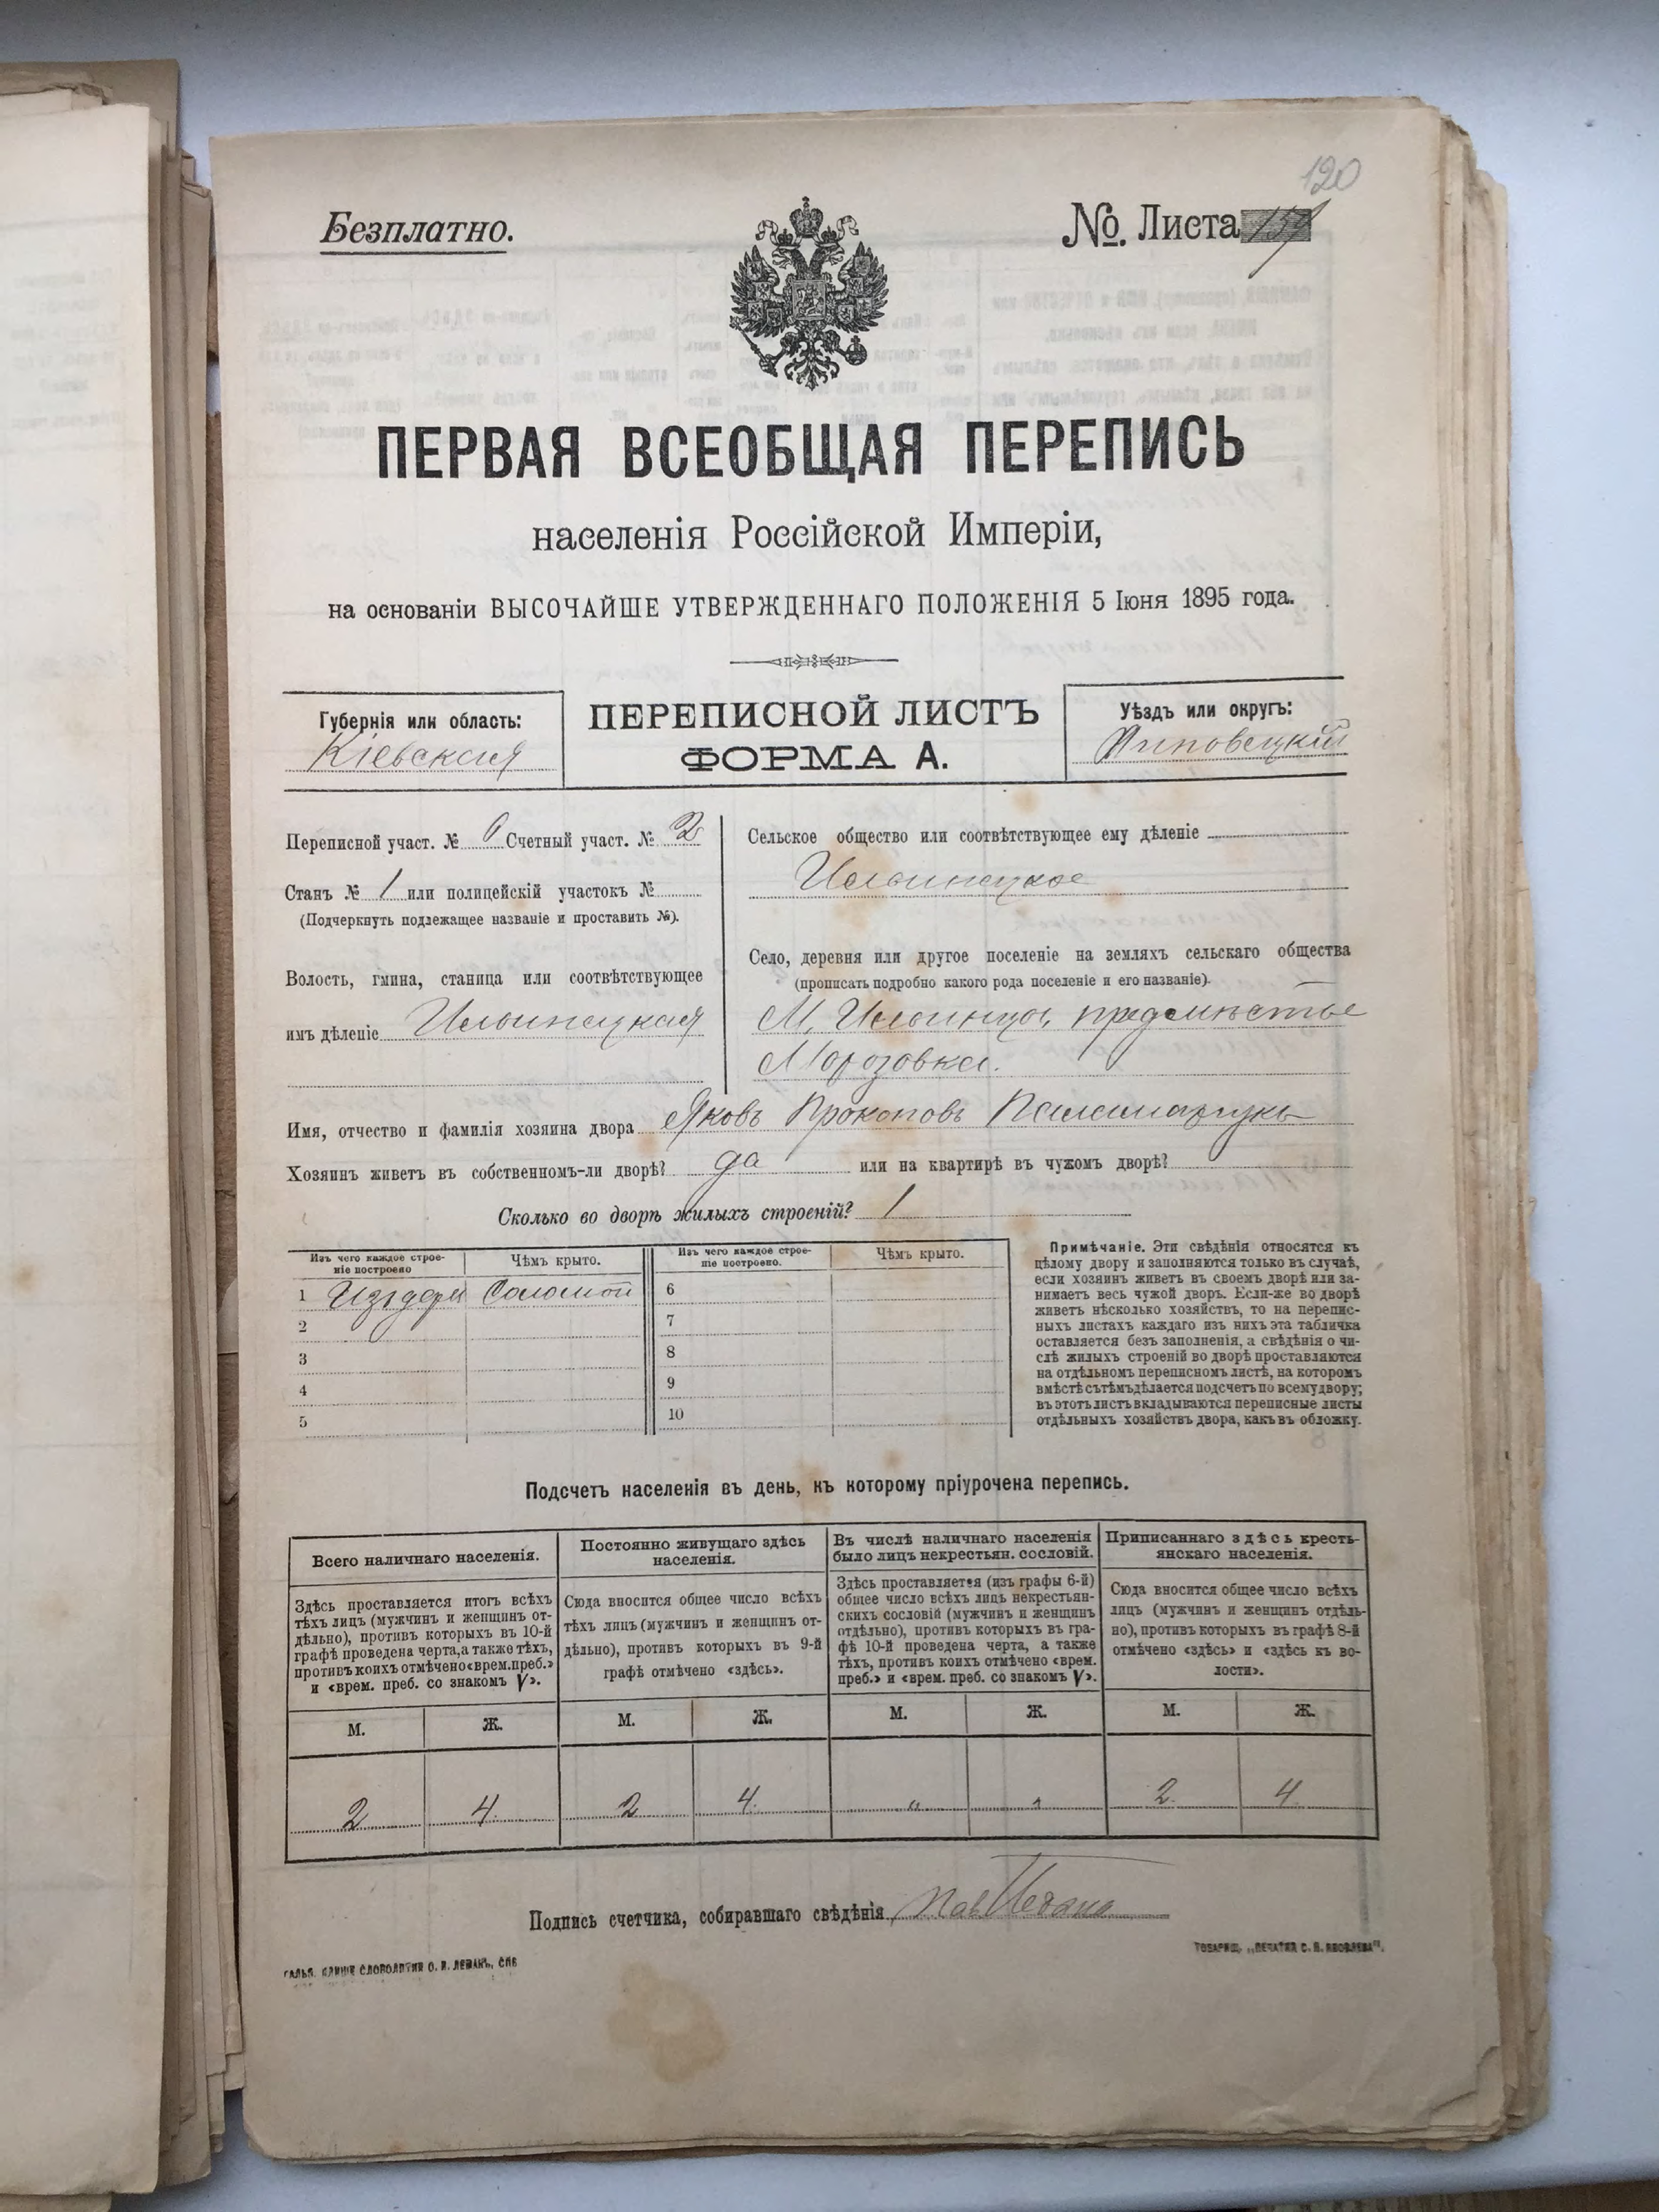 120
Безплатно.
№ Листа
ПЕРВАЯ ВСЕОБЩАЯ ПЕРЕПИСЬ
населенія Россійской Имперіи,
на основаніи ВЫСОЧАЙШЕ УТВЕРЖДЕННАГО ПОЛОЖЕНІЯ 5 Іюня 1895 года.
Губернія или область:
Кіевская
ПЕРЕПИСНОЙ ЛИСТЪ
ФОРМА А.
Уѣздъ или округъ:
Липовецкій
Переписной участ. № Счетный участ. № 2
Станъ № 1 или полицейскій участокъ №
(Подчеркнуть подлежащее названіе и проставить №).
Волость, гмина, станица или соотвѣтствующее
имъ дѣленіе Ильинецкая
Сельское общество или соотвѣтствующее ему дѣленіе
Ильинецкое
Село, деревня или другое поселеніе на земляхъ сельскаго общества
(прописать подробно какого рода поселеніе и его названіе).
М. Ильинцы, предмѣстье
Морозовка.
Имя, отчество и фамилія хозяина двора Яковъ Прокоповъ Паламарчукъ
Хозяинъ живетъ въ собственномъ-ли дворѣ? да или на квартирѣ въ чужомъ дворѣ?
Сколько во дворѣ жилыхъ строеній? 1
Изъ чего каждое строе-
ніе построено
Чѣмъ крыто.
Изъ чего каждое строе-
ніе построено.
Чѣмъ крыто.
1 Изъ дерев Соломой
2
3
4
5
6
7
8
9
10
Примѣчаніе. Эти свѣдѣнія относятся къ
цѣлому двору и заполняются только въ случаѣ,
если хозяинъ живетъ въ своемъ дворѣ или за-
нимаетъ весь чужой дворъ. Если-же во дворѣ
живетъ нѣсколько хозяйствъ, то на перепис-
ныхъ листахъ каждаго изъ нихъ эта табличка
оставляется безъ заполненія, а свѣдѣнія о чи-
слѣ жилыхъ строеній во дворѣ проставляются
на отдѣльномъ переписномъ листѣ, на которомъ
вмѣстѣ съ тѣмъ дѣлается подсчетъ по всему двору;
въ этотъ листъ вкладываются переписные листы
отдѣльныхъ хозяйствъ двора, какъ въ обложку.
Подсчетъ населенія въ день, къ которому пріурочена перепись.
Всего наличнаго населенія.
Постоянно живущаго здѣсь
населенія.
Въ числѣ наличнаго населенія
было лицъ некрестьян. сословій.
Приписаннаго здѣсь кресть-
янскаго населенія.
Здѣсь проставляется итогъ всѣхъ
тѣхъ лицъ (мужчинъ и женщинъ от-
дѣльно), противъ которыхъ въ 10-й
графѣ проведена черта, а также тѣхъ,
противъ коихъ отмѣчено «врем. преб.»
и «врем. преб. со знакомъ V».
Сюда вносится общее число всѣхъ
тѣхъ лицъ (мужчинъ и женщинъ от-
дѣльно), противъ которыхъ въ 9-й
графѣ отмѣчено «здѣсь».
Здѣсь проставляется (изъ графы 6-й)
общее число всѣхъ лицъ некрестьян-
скихъ сословій (мужчинъ и женщинъ
отдѣльно), противъ которыхъ въ гра-
фѣ 10-й проведена черта, а также
тѣхъ, противъ коихъ отмѣчено «врем.
преб.» и «врем. преб. со знакомъ V».
Сюда вносится общее число всѣхъ
лицъ (мужчинъ и женщинъ отдѣль-
но), противъ которыхъ въ графѣ 8-й
отмѣчено «здѣсь» и «здѣсь къ во-
лости».
М. Ж. М. Ж. М. Ж. М. Ж.
2 4. 2 4. „ „ 2. 4.
Подпись счетчика, собиравшаго свѣдѣнія
ГАЛЬВ. КЛИШЕ СЛОВОЛИТНИ О. И. ЛЕМАНЪ, СПБ
ТОВАРИЩ. „ПЕЧАТНЯ С. П. ЯКОВЛЕВА".